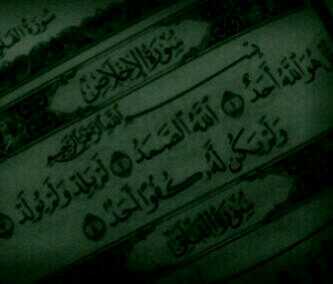 سورة الإخلاص
بسم الله الرحمن الرحيم
هو الله أحد ۝ الله الصمد ۝ لم يلد ولم يولد ۝
ولم يكن له كفوا أحد ۝
سورة الفلق